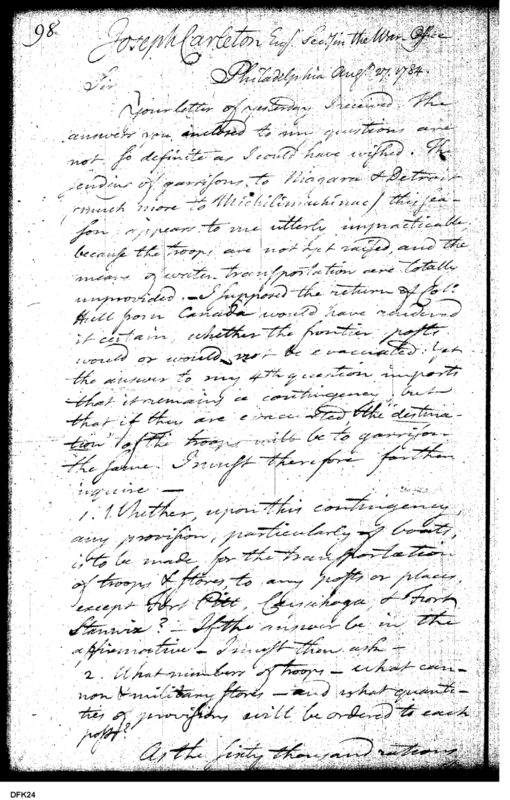 98
Joseph Carleton Esqr. Secy. in the War Office
Sir Philadelphia Augt. 27. 1784.
Your letter of yesterday I received. The
answers you inclosed to my questions are
not so definite as I could have wished. The
sending of garrisons to Niagara & Detroit
(much more to Michilimackinac) this sea-
son appears to me utterly impracticable,
because the troops are not yet raised, and the
means of water transportation are totally
unprovided. - I supposed the return of Colo.
Hull from Canada would have rendered
it certain, whether the frontier posts
would or would not be evacuated: yet
the answer to my 4th question imports
that it remains a contingency, but
that if they are evacuated "the destina-
tion" of the troops will be to garrison
the same. I must therefore farther
inquire -
1. Whether, upon this contingency,
any provision, particularly of boats,
is to be made for the transportation
of troops & stores to any posts or places,
except Fort Pitt, Cuyahoga, & Fort
Stanwix? - If the answer be in the
affirmative - I must then ask -
2. What numbers of troops - what can-
non & military stores - and what quanti-
ties of provisions will be ordered to each
post?
As the sixty thousand rations
DFK24